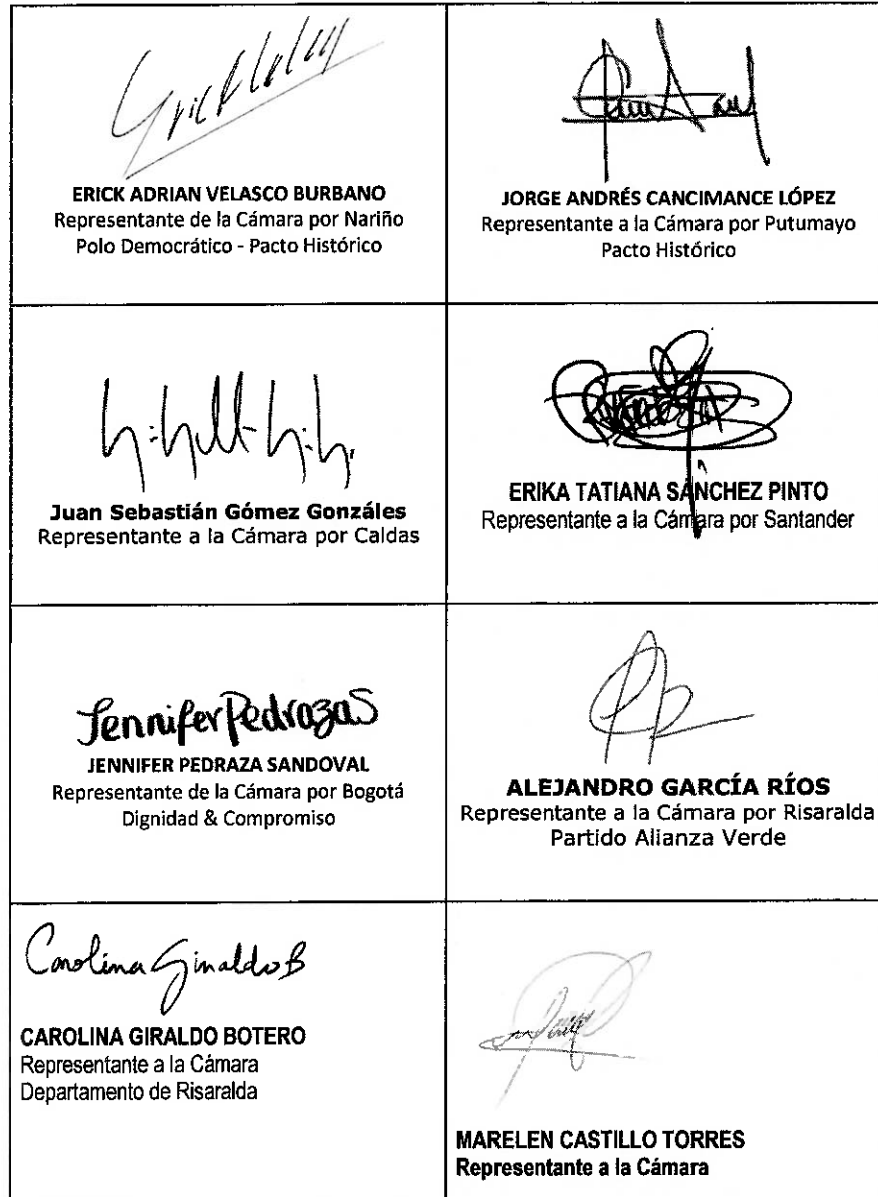 ERICK ADRIAN VELASCO BURBANO
Representante de la Cámara por Nariño
Polo Democrático - Pacto Histórico
JORGE ANDRÉS CANCIMANCE LÓPEZ
Representante a la Cámara por Putumayo
Pacto Histórico
Juan Sebastián Gómez Gonzáles
Representante a la Cámara por Caldas
ERIKA TATIANA SÁNCHEZ PINTO
Representante a la Cámara por Santander
Jennifer Pedraza S
JENNIFER PEDRAZA SANDOVAL
Representante de la Cámara por Bogotá
Dignidad & Compromiso
ALEJANDRO GARCÍA RÍOS
Representante a la Cámara por Risaralda
Partido Alianza Verde
Carolina Giraldo B
CAROLINA GIRALDO BOTERO
Representante a la Cámara
Departamento de Risaralda
MARELEN CASTILLO TORRES
Representante a la Cámara